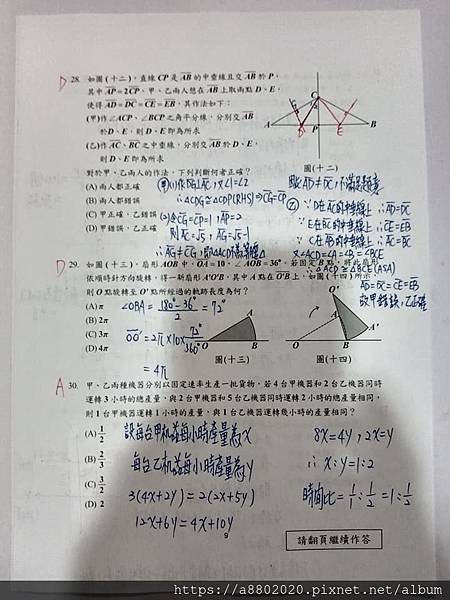 D 28. 如圖(十二),直線CP是AB的中垂線且交AB於P,
其中AP=2CP。甲、乙兩人想在AB上取兩點D、E,
使得AD=DC=CE=EB,其作法如下:
(甲)作∠ACP、∠BCP之角平分線,分別交AB
於D、E,則D、E即為所求
(乙)作AC、BC之中垂線,分別交AB於D、E,
則D、E即為所求
對於甲、乙兩人的作法,下列判斷何者正確?
(A)兩人都正確
(B)兩人都錯誤
(C)甲正確,乙錯誤
(D)甲錯誤,乙正確
C
A
D
P
E
B
圖(十二)
∴△CDG≅△CDP(RHS)⇒CG=CP
(2)令CG=CP=1,AP=2
則AC=√5,AG=√5-1
即AD≠DC,不滿足題意
∵D在AC的中垂線上∴AD=DC
E在BC的中垂線上∴CE=EB
C在AB的中垂線上∴AC=BC
又∠ACD=∠A=∠B=∠BCE
∴△ACD≅△BCE(ASA)
AD=DC=CE=EB
故甲錯誤,乙正確
D 29. 如圖(十三),扇形AOB中,OA=10,∠AOB=36°。若固定B點,將此扇形
依順時針方向旋轉,得一新扇形A'O'B,其中A點在O'B上,如圖(十四)所示,
則O點旋轉至O'點所經過的軌跡長度為何?
(A)π
(B)2π
(C)3π
(D)4π
∠OBA=180°-36°/2=72°
OO'=2π×10×72°/360°
=4π
A
O
B
圖(十三)
O'
A
A'
O
B
圖(十四)
A 30. 甲、乙兩種機器分別以固定速率生產一批貨物,若4台甲機器和2台乙機器同時
運轉3小時的總產量,與2台甲機器和5台乙機器同時運轉2小時的總產量相同,
則1台甲機器運轉1小時的產量,與1台乙機器運轉幾小時的產量相同?
(A)1/2
(B)2/3
(C)3/2
(D)2
設每台甲机器每小時產量為x
每台乙机器每小時產量為y
3(4x+2y)=2(2x+5y)
12x+6y=4x+10y
8x=4y,2x=y
∴x:y=1:2
時間比=1/1:1/2=1:1/2
9
請翻頁繼續作答
https://a8802020.pixnet.net/album